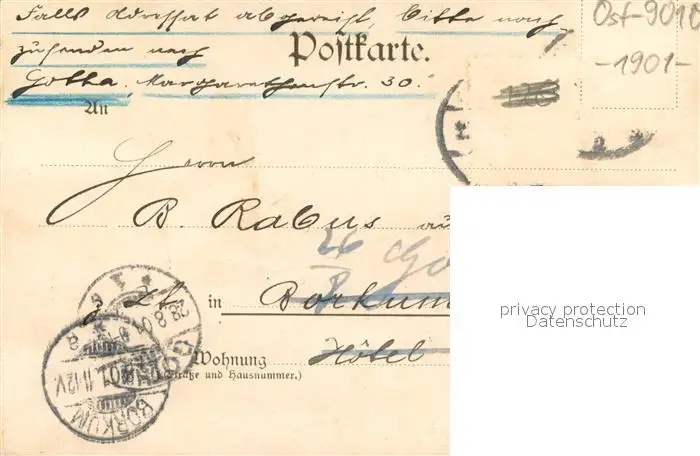 Falls Adressat abgereist, bitte nach-
zusenden nach
Gotha, Margarethenstr. 30.
Postkarte.
Ost-901
-1901-
An
Herrn
B. Rabus
26
8
z. Zt. in Borkum
Hôtel
Wohnung
(Straße und Hausnummer.)
BORKUM
01. 11-12V.
privacy protection
Datenschutz